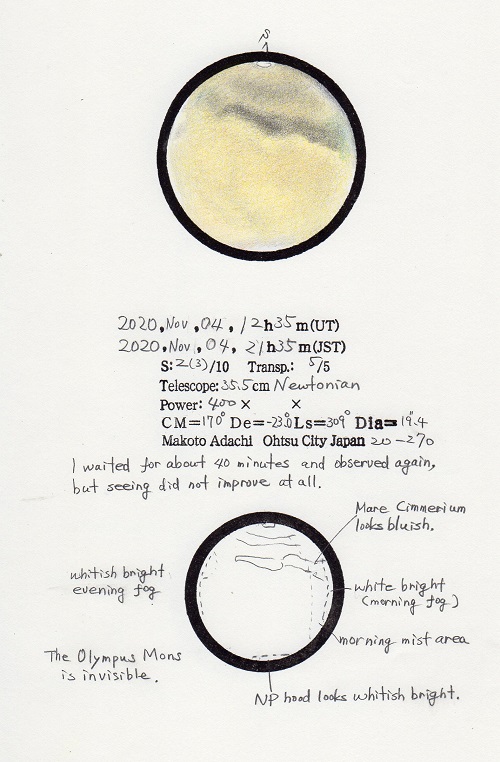 S
2020, Nov, 04, 12h35m(UT)
2020, Nov, 04, 21h35m(JST)
S: 2(3)/10 Transp.: 5/5
Telescope: 35.5cm Newtonian
Power: 400× ×
CM=170° De=-23.0 Ls=309° Dia=19".4
Makoto Adachi Ohtsu City Japan 20-270
I waited for about 40 minutes and observed again,
but seeing did not improve at all.
Mare Cimmerium
looks bluish.
whitish bright
evening fog
white bright
(morning fog)
morning mist area
The Olympus Mons
is invisible.
NP hood looks whitish bright.